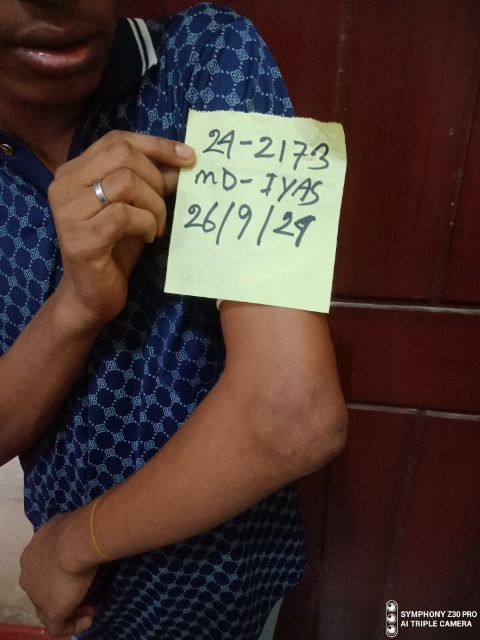 24-2173
MD-IYAS
26/9/24
SYMPHONY Z30 PRO
AI TRIPLE CAMERA